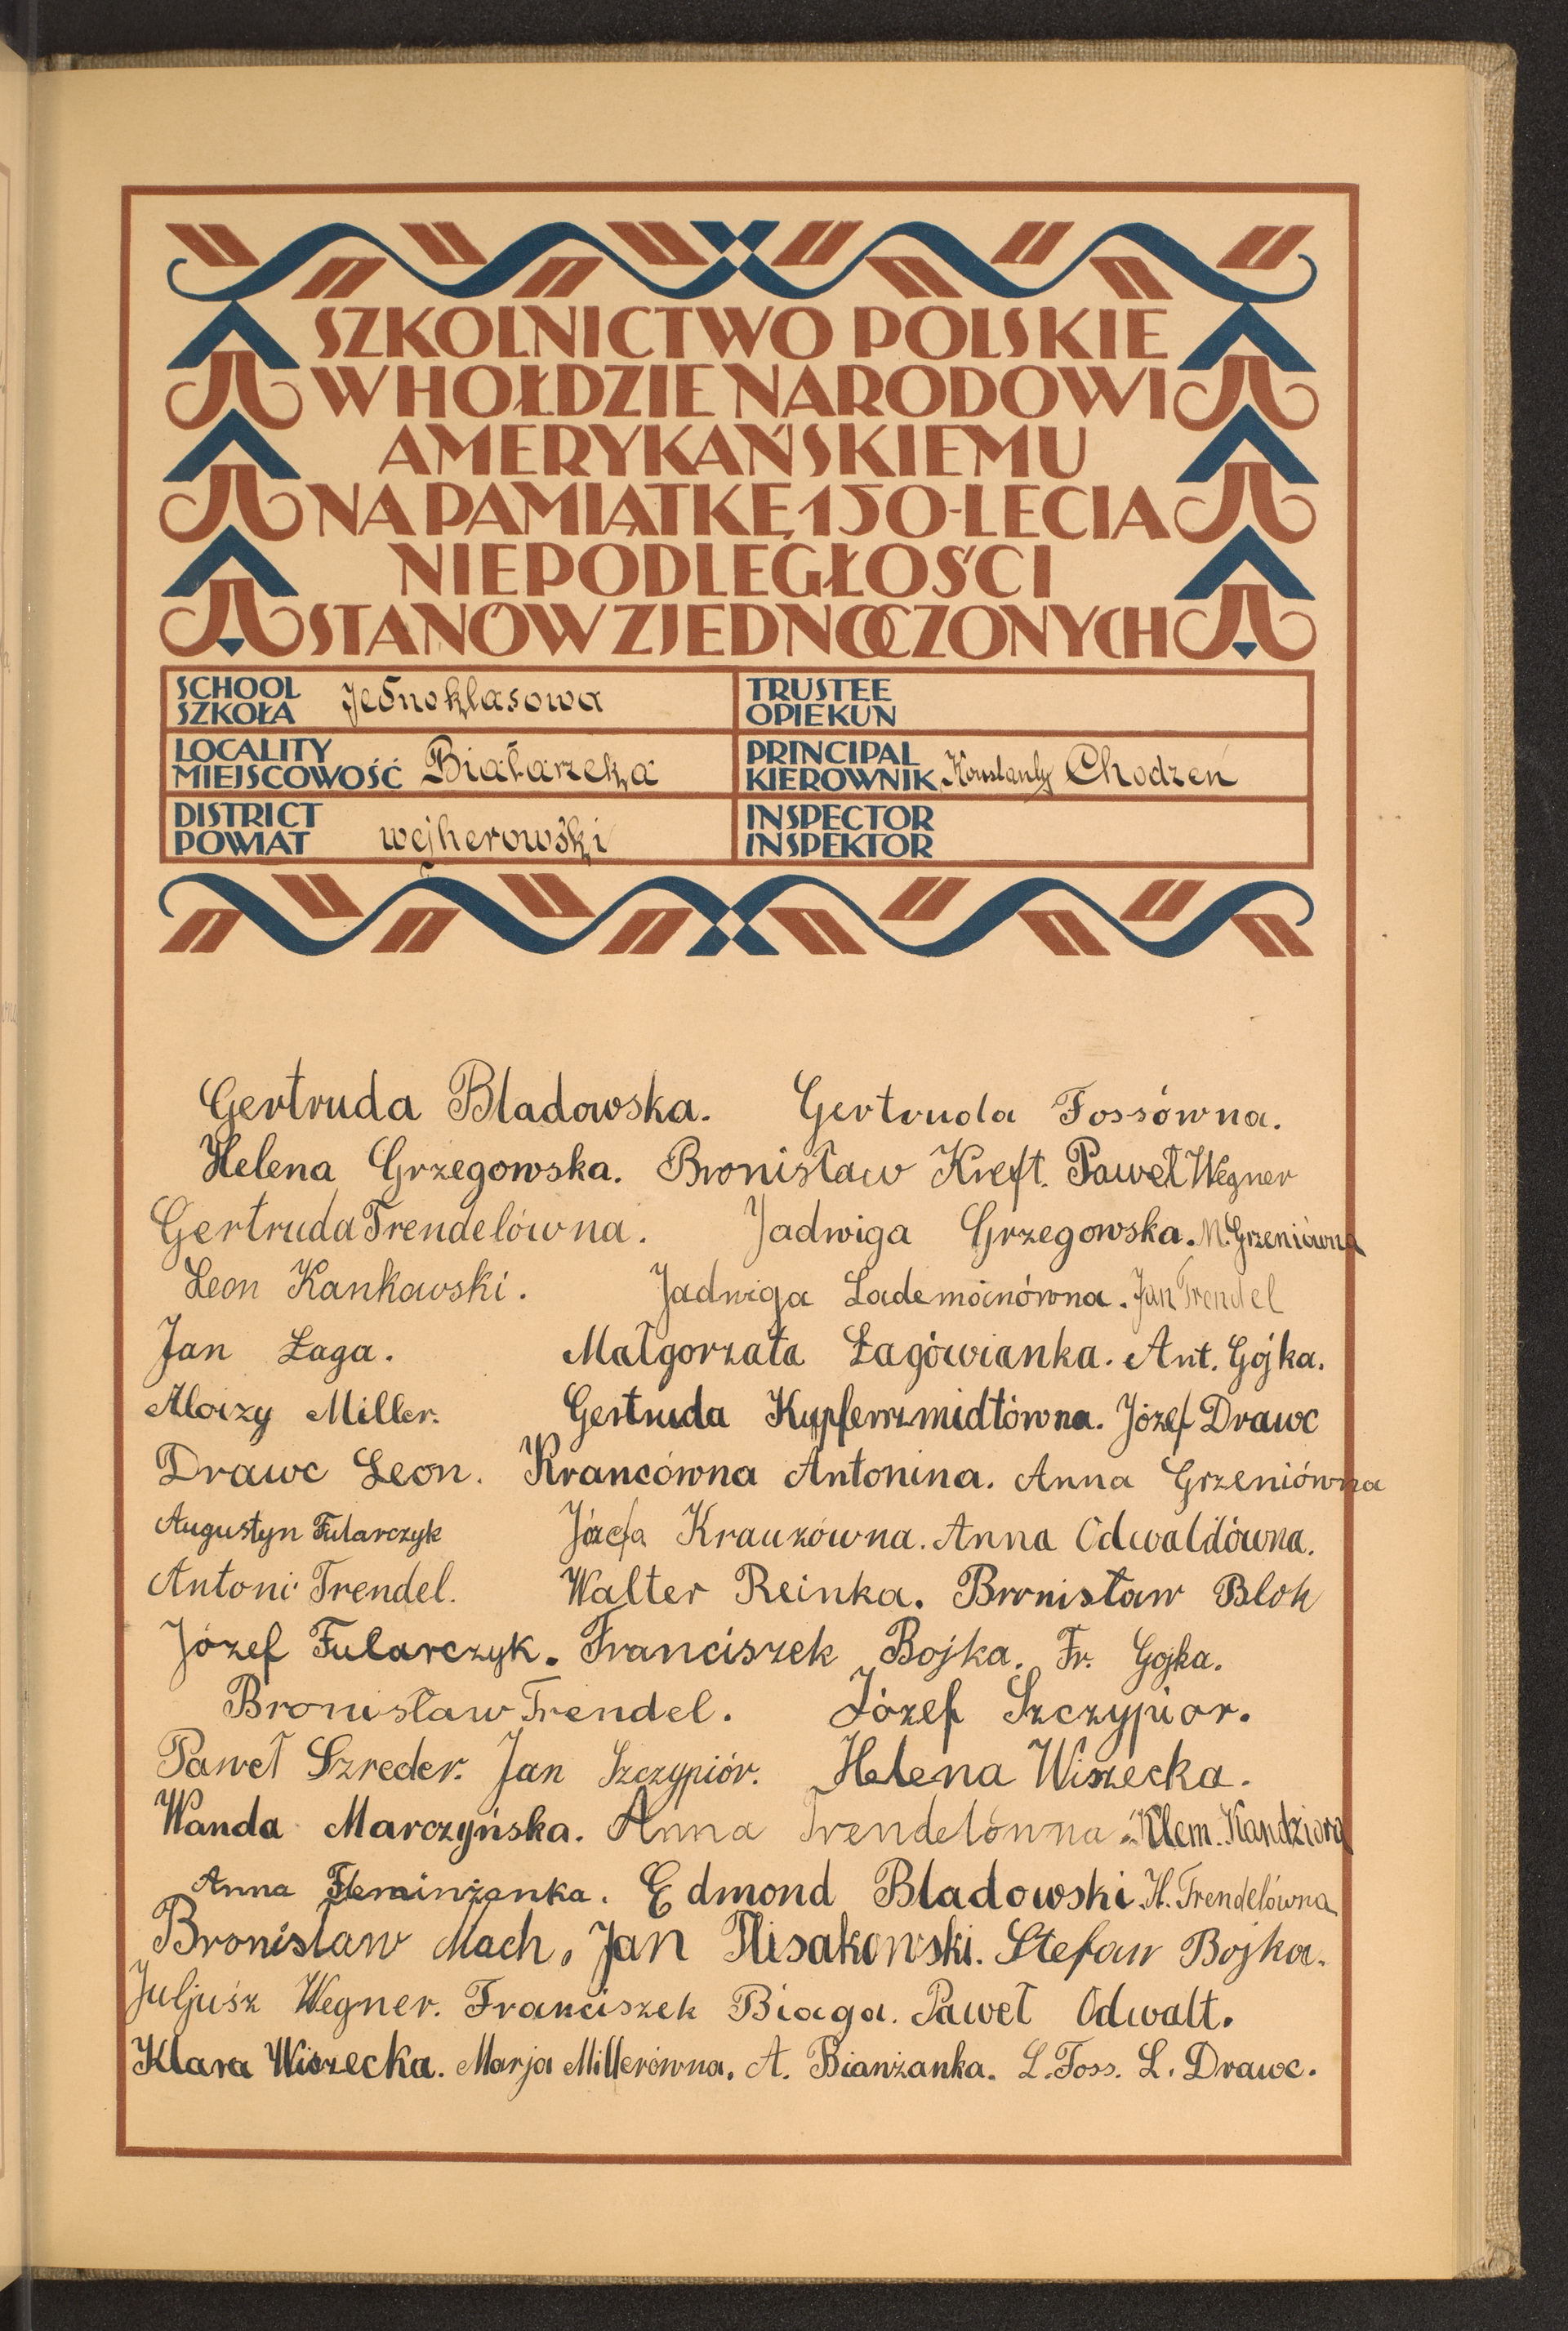 SZKOLNICTWO POLSKIE
W HOŁDZIE NARODOWI
AMERYKAŃSKIEMU
NA PAMIĄTKĘ 150-LECIA
NIEPODLEGŁOŚCI
STANÓW ZJEDNOCZONYCH
SCHOOL
SZKOŁA Jednoklasowa
TRUSTEE
OPIEKUN
LOCALITY
MIEJSCOWOŚĆ Białarzeka
PRINCIPAL
KIEROWNIK Konstanty Chodzeń
DISTRICT
POWIAT wejherowski
INSPECTOR
INSPEKTOR
Gertruda Bladowska. Gertruda Fossówna.
Helena Grzegowska. Bronisław Kreft. Paweł Wegner
Gertruda Trendelówna. Jadwiga Grzegowska. M. Grzeniówna
Leon Kankowski. Jadwiga Lademanówna. Jan Trendel
Jan Łaga. Małgorzata Łagówianka. Ant. Gójka.
Aloizy Miller. Gertruda Kupferszmidtówna. Józef Drawc
Drawc Leon. Krancówna Antonina. Anna Grzeniówna
Augustyn Fularczyk Józefa Krauzówna. Anna Odwaldówna.
Antoni Trendel. Walter Reinka. Bronisław Blok
Józef Fularczyk. Franciszek Bojka. Fr. Gojka.
Bronisław Trendel. Józef Szczypior.
Paweł Szreder. Jan Szczypiór. Helena Wiszecka.
Wanda Marczyńska. Anna Trendelówna. Klem. Kandziora
Anna Fleminżanka. Edmond Bladowski. H. Trendelówna
Bronisław Mach. Jan Plisakowski. Stefan Bojka.
Juljusz Wegner. Franciszek Biaga. Paweł Odwalt.
Klara Wiszecka. Marja Millerówna. A. Bianżanka. L. Foss. L. Drawc.